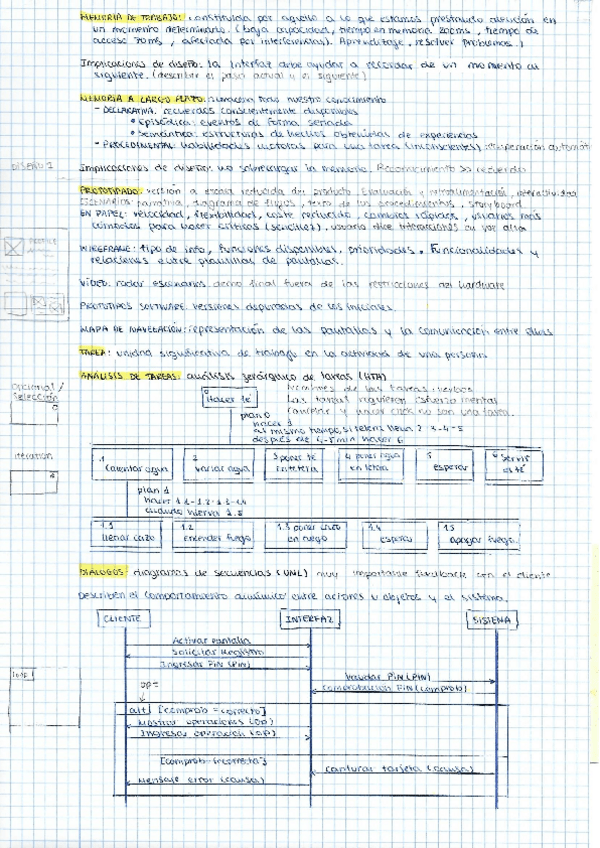 MEMORIA DE TRABAJO: constituida por aquello a lo que estamos prestando atención en
un momento determinado. (baja capacidad, tiempo en memoria 200ms, tiempo de
acceso 70ms, afectada por interferencias). Aprendizaje, resolver problemas.)
Implicaciones de diseño: la interfaz debe ayudar a recordar de un momento al
siguiente. (describir el paso actual y el siguiente)
MEMORIA A LARGO PLAZO: almacena todo nuestro conocimiento
- DECLARATIVA: recuerdos conscientemente disponibles
• Episódica: eventos de forma seriada
• Semántica: estructuras de hechos obtenidas de experiencias
- PROCEDIMENTAL: habilidades motoras para una tarea (inconscientes): recuperación automát
DISEÑO I
Implicaciones de diseño: no sobrecargar la memoria. Reconocimiento >> recuerdo
PROTOTIPADO: versión a escala reducida del producto. Evaluación y retroalimentación,
ESCENARIOS: narrativa, diagrama de flujos, texto de los procedimientos, storyboard
EN PAPEL: velocidad, flexibilidad, coste reducido, cambios rápidos, usuarios más
cómodos para hacer críticas (sencillez), usuario dice interacciones en voz alta
WIREFRAME: tipo de info, funciones disponibles, prioridades. Funcionalidades y
relaciones entre plantillas de pantallas.
VÍDEO: rodar escenarios como final fuera de las restricciones del hardware
PROTOTIPOS SOFTWARE: versiones depuradas de los iniciales.
MAPA DE NAVEGACIÓN: representación de las pantallas y la comunicación entre ellas
TAREA: unidad significativa de trabajo en la actividad de una persona
ANÁLISIS DE TAREAS: análisis jerárquico de tareas (HTA)
Opcional /
Selección
0
Hacer té
Nombres de las tareas: verbos
Las tareas requieren esfuerzo mental
Cancelar y hacer click no son una tarea.
plan 0
hacer 1
al mismo tiempo, si tetera llena 2 3-4-5
después de 4-5 min hacer 6
iteración
1
Calentar agua
2
vaciar agua
3 poner té
en tetera
4 poner agua
en tetera
5
esperar
6 Servir
el té
plan 1
hacer 1.1-1.2-1.3-1.4
cuando hierva 1.5
1.1
llenar cazo
1.2
encender fuego
1.3 poner cazo
en fuego
1.4
esperar
1.5
apagar fuego
DIÁLOGOS: diagramas de secuencias (UML) muy importante feedback con el cliente
Describen el comportamiento dinámico entre actores u objetos y el sistema.
CLIENTE
INTERFAZ
SISTEMA
Activar pantalla
Solicitar Registro
Ingresar PIN (PIN)
Validar PIN (PIN)
Comprobación PIN (comprob)
loop
op=
alt [comprob = correcto]
Mostrar operaciones (op)
Ingresar operación (op)
[comprob = incorrecta]
Capturar tarjeta (causa)
Mensaje error (causa)